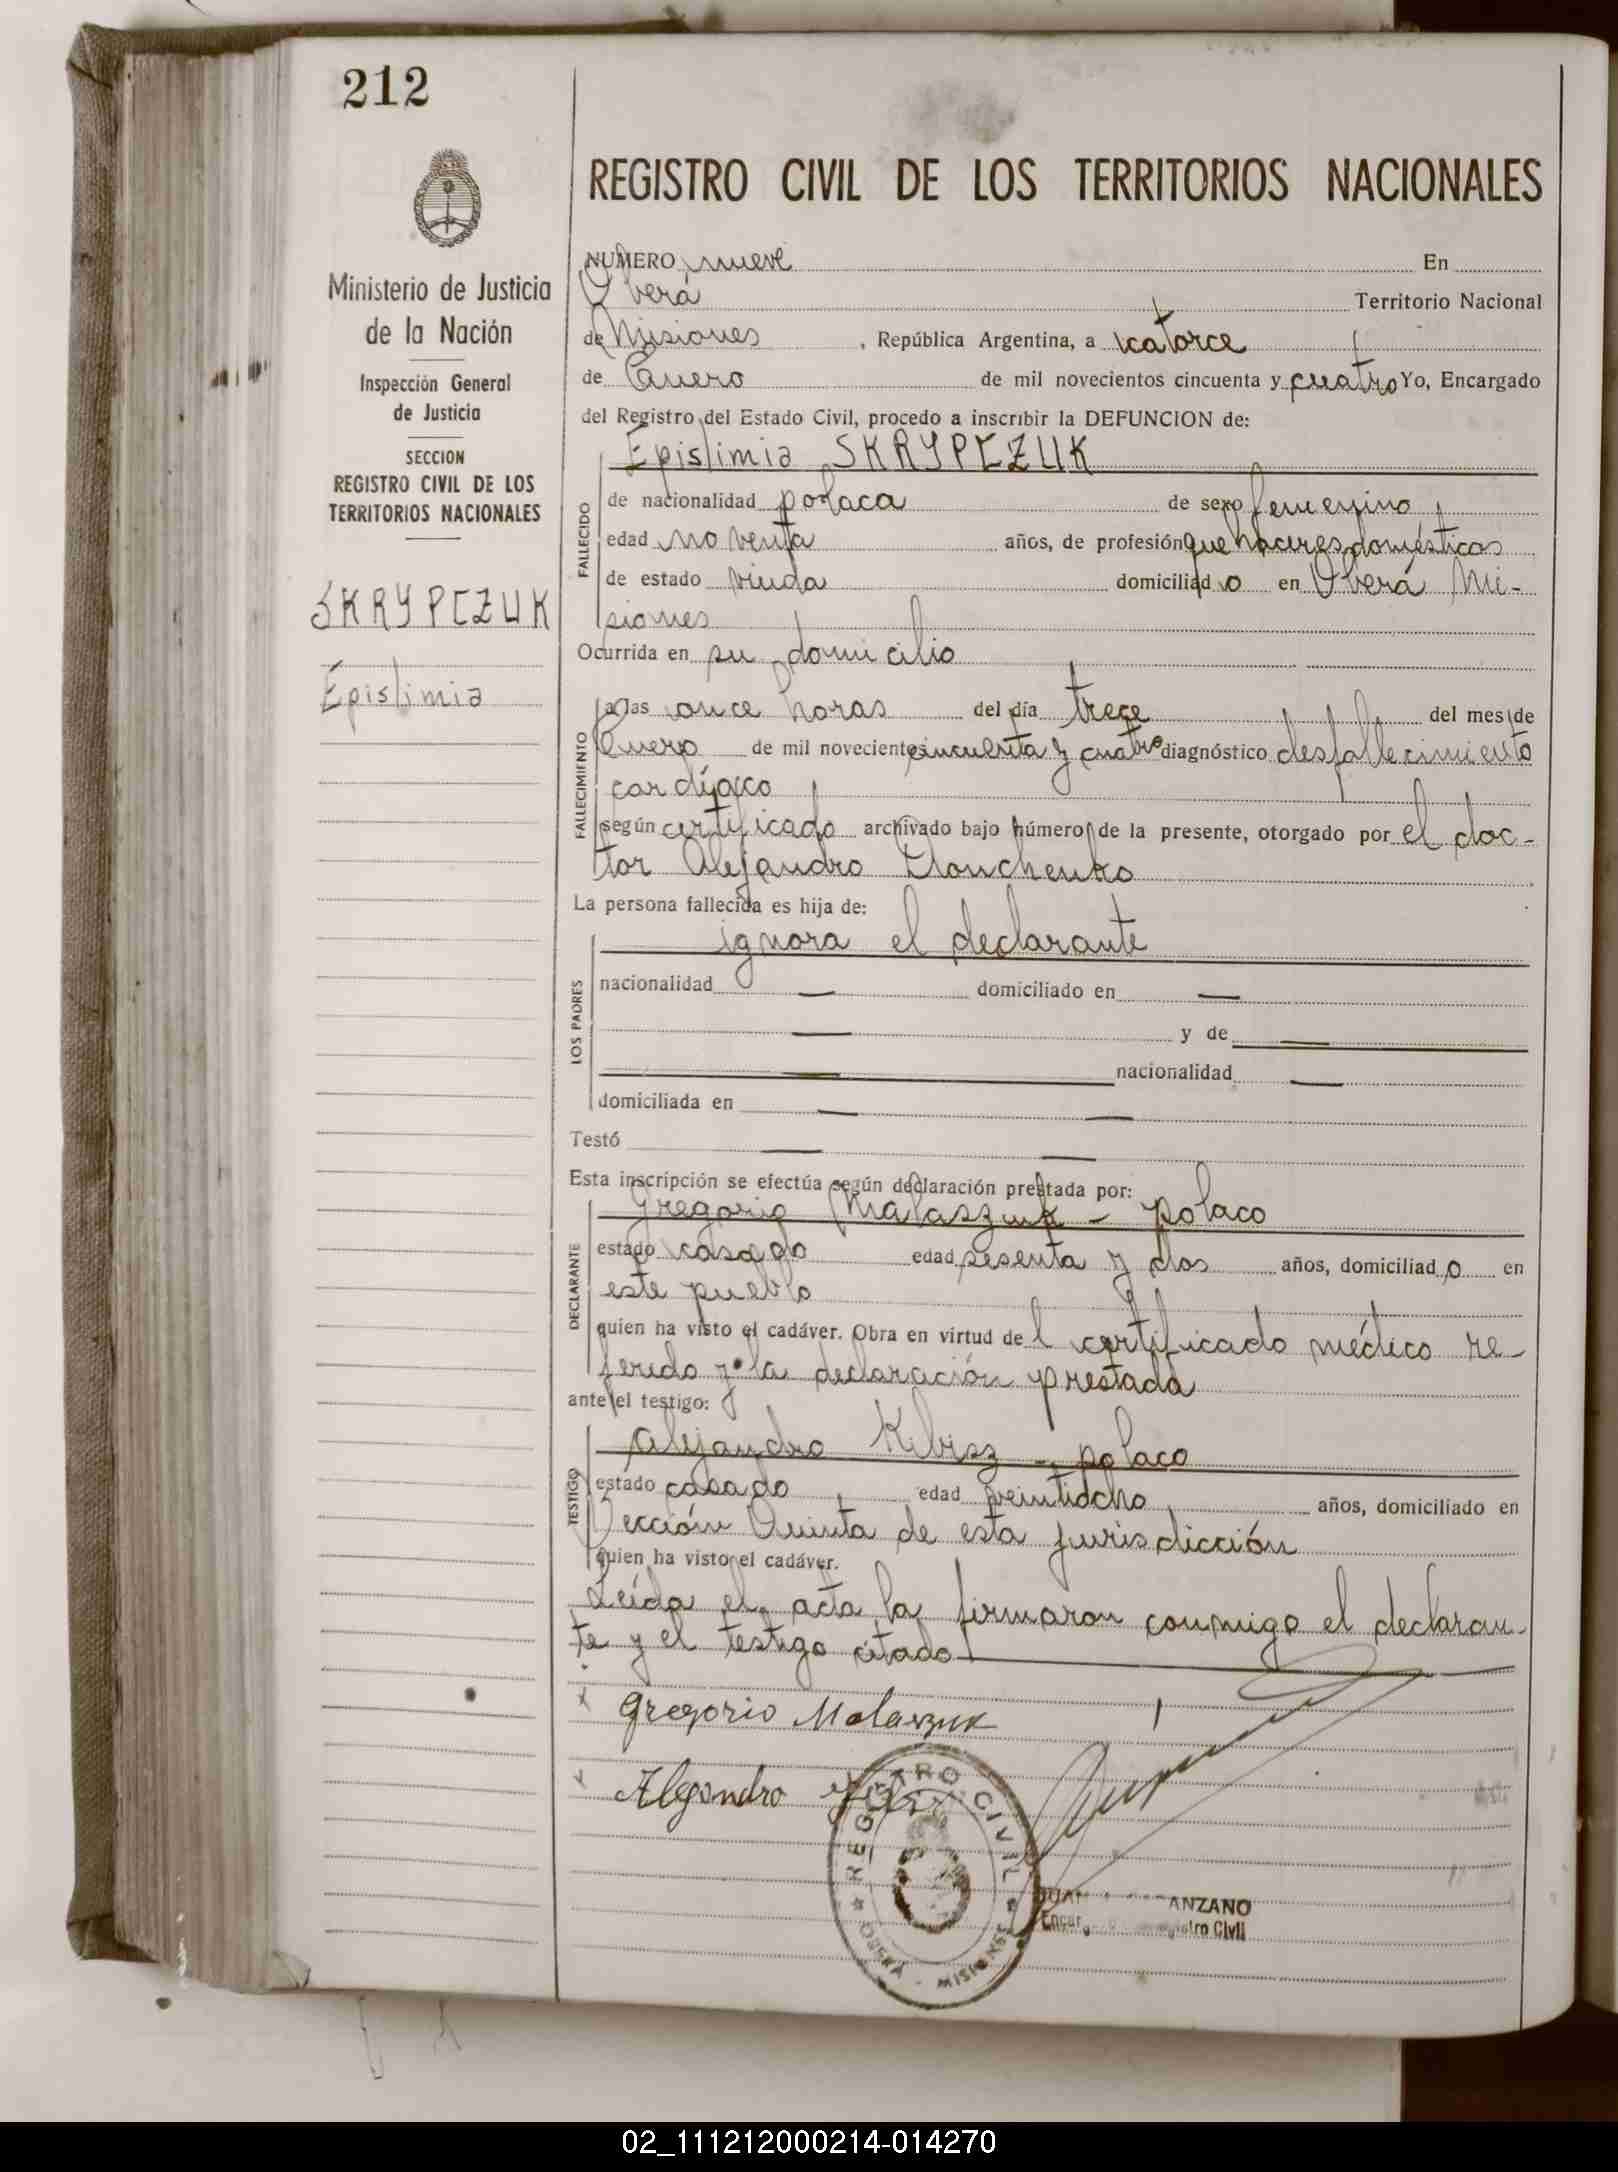 212
REGISTRO CIVIL DE LOS TERRITORIOS NACIONALES
Ministerio de Justicia
de la Nación
Inspección General
de Justicia
SECCION
REGISTRO CIVIL DE LOS
TERRITORIOS NACIONALES
SKRYPCZUK
Epislimia
NUMERO nueve En
Oberá Territorio Nacional
de Misiones, República Argentina, a catorce
de Enero de mil novecientos cincuenta y cuatro Yo, Encargado
del Registro del Estado Civil, procedo a inscribir la DEFUNCION de:
Epislimia SKRYPCZUK
FALLECIDO
de nacionalidad polaca de sexo femenino
edad noventa años, de profesión quehaceres domésticos
de estado viuda domiciliado en Oberá Mi-
siones
Ocurrida en su domicilio
FALLECIMIENTO
a las once horas del día trece del mes de
Enero de mil novecientos cincuenta y cuatro diagnóstico desfallecimiento
cardíaco
según certificado archivado bajo número de la presente, otorgado por el doc-
tor Alejandro
La persona fallecida es hija de:
ignora el declarante
LOS PADRES
nacionalidad — domiciliado en —
— y de —
— nacionalidad —
domiciliada en — —
Testó — —
Esta inscripción se efectúa según declaración prestada por:
Gregorio Malaszuk - polaco
DECLARANTE
estado casado edad sesenta y dos años, domiciliado en
este pueblo
quien ha visto el cadáver. Obra en virtud del certificado médico re-
ferido y la declaración prestada
ante el testigo:
Alejandro Kibisz - polaco
TESTIGO
estado casado edad veintiocho años, domiciliado en
Sección Quinta de esta jurisdicción
quien ha visto el cadáver.
Leída el acta la firmaron conmigo el declaran-
te y el testigo citado
Gregorio Malaszuk
Alejandro
REGISTRO CIVIL
OBERÁ - MISIONES
ANZANO
Registro Civil
02_111212000214-014270